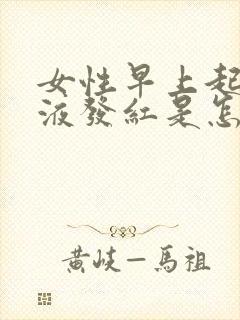 女性早上起
液發紅是怎
黄岐—馬祖